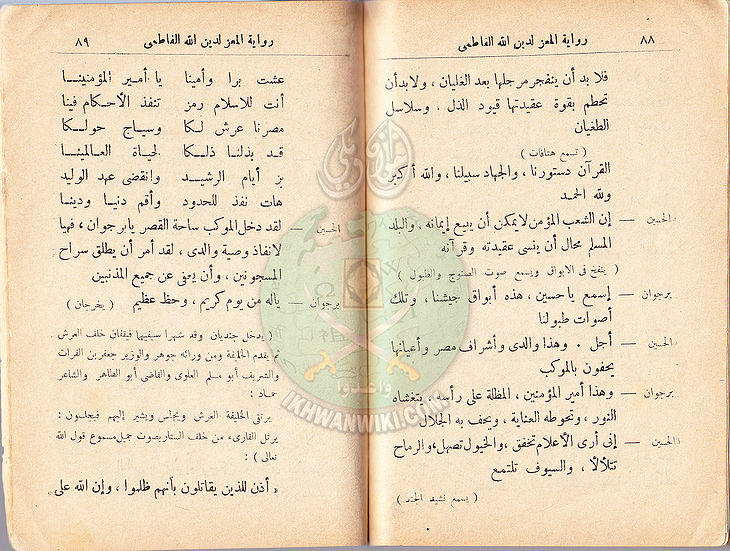 ٨٨ رواية المعز لدين الله الفاطمى
فلا بد أن ينفجر مرجلها بعد الغليان ، ولابدأن
تحطم بقوة عقيدتها قيود الذل . وسلاسل
الطغيان
( تسمع هتافات )
القرآن دستورنا ، والجهاد سبيلنا ، والله أكبر
ولله الحمد
الحسين — إن الشعب المؤمن لايمكن أن يبيع إيمانه ، والبلد
المسلم محال أن ينسى عقيدته وقرآنه
( ينفخ فى الابواق ويسمع صوت الصنوج والطبول )
برجوان — إسمع ياحسين ، هذه أبواق جيشنا ، وتلك
أصوات طبولنا
الحسين — أجل . وهذا والدى وأشراف مصر وأعيانها
يحفون بالموكب
برجوان — وهذا أمير المؤمنين ، المظلة على رأسه ، يتغشاه
النور ، وتحوطه العناية ، ويحف به الجلال
الحسين — إنى أرى الأعلام تخفق ، والخيول تصهل ، والرماح
تتلألأ ، والسيوف تلتمع
( يسمع نشيد الجند )
رواية المعز لدين الله الفاطمى ٨٩
عشت برا وأمينا يا أمير المؤمنينا
أنت للاسلام رمز تنفذ الأحكام فينا
مصرنا عرش لكا وسياج حولكا
قد بذلنا ذلكا لحياة العالمينا
بز أيام الرشيد وانقضى عهد الوليد
هات نفذ للحدود وأقم دنيا ودينا
الحسين — لقد دخل الموكب ساحة القصر يابرجوان ، فهيا
لانفاذ وصية والدى ، لقد أمر أن يطلق سراح
المسجونين ، وأن يعفى عن جميع المذنبين
برجوان — ياله من يوم كريم ، وحظ عظيم ( يخرجان )
( يدخل جنديان وقد شهرا سيفيهما فيقفان خلف العرش
ثم يقدم الخليفة ومن ورائه جوهر والوزير جعفر بن الفرات
والشريف أبو مسلم العلوى والقاضى أبو الطاهر والشاعر
حماد :
يرتقى الخليفة العرش ويجلس ويشير إليهم فيجلسون :
يرتل القارىء من خلف الستار بصوت جميل مسموع قول الله
تعالى ) :
« أذن للذين يقاتلون بأنهم ظلموا ، وإن الله على
وأعدوا
IKHWANWIKI.COM